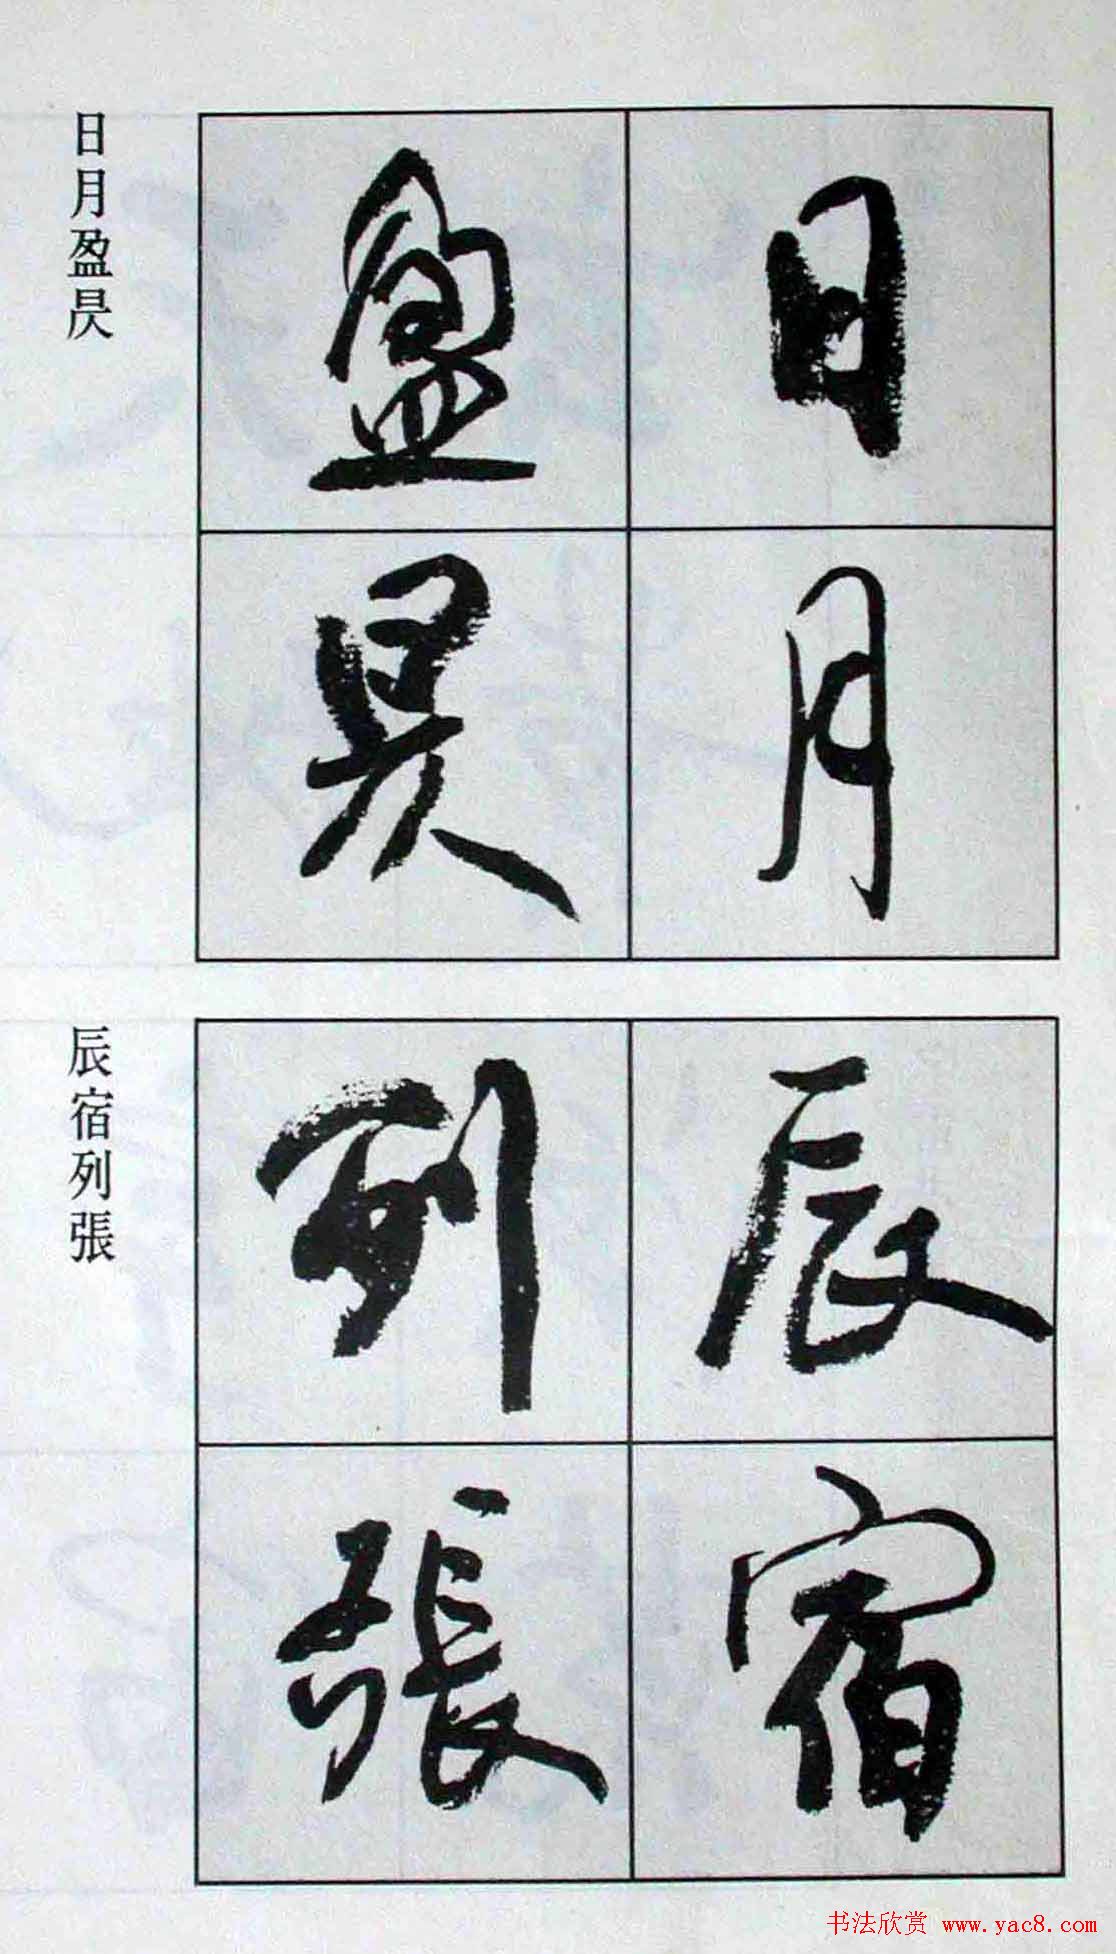 日月
盈昃
日月盈昃
辰宿
列張
辰宿列張
书法欣赏 www.yac8.com